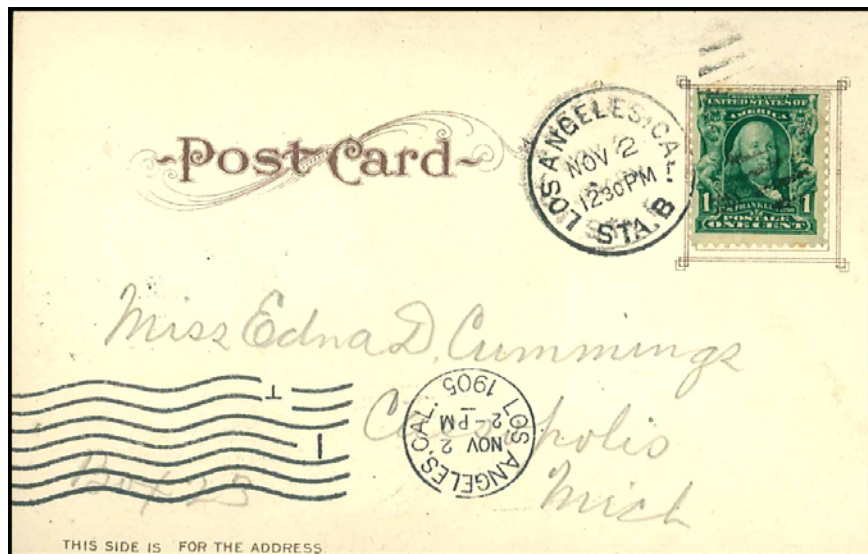 Post Card
LOS ANGELES, CAL.
NOV 2
12 30 PM
STA. B
UNITED STATES OF
AMERICA
1 FRANKLIN 1
POSTAGE
ONE CENT
Miss Edna D. Cummings
Cassopolis
Mich
Box 23
LOS ANGELES, CAL.
NOV 2
2-PM
1905
T
1
THIS SIDE IS FOR THE ADDRESS.